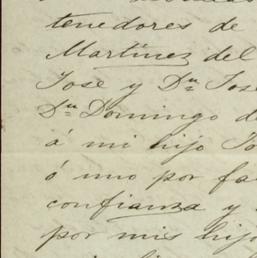 tenedores de
Martínez del
José y Dn José
Dn Domingo de
á mi hijo
ó uno por fa
confianza y
por mis hijo